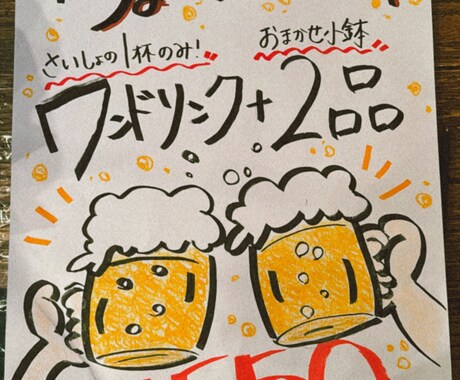 さいしょの1杯のみ!
おまかせ小鉢
ワンドリンク+2品
550